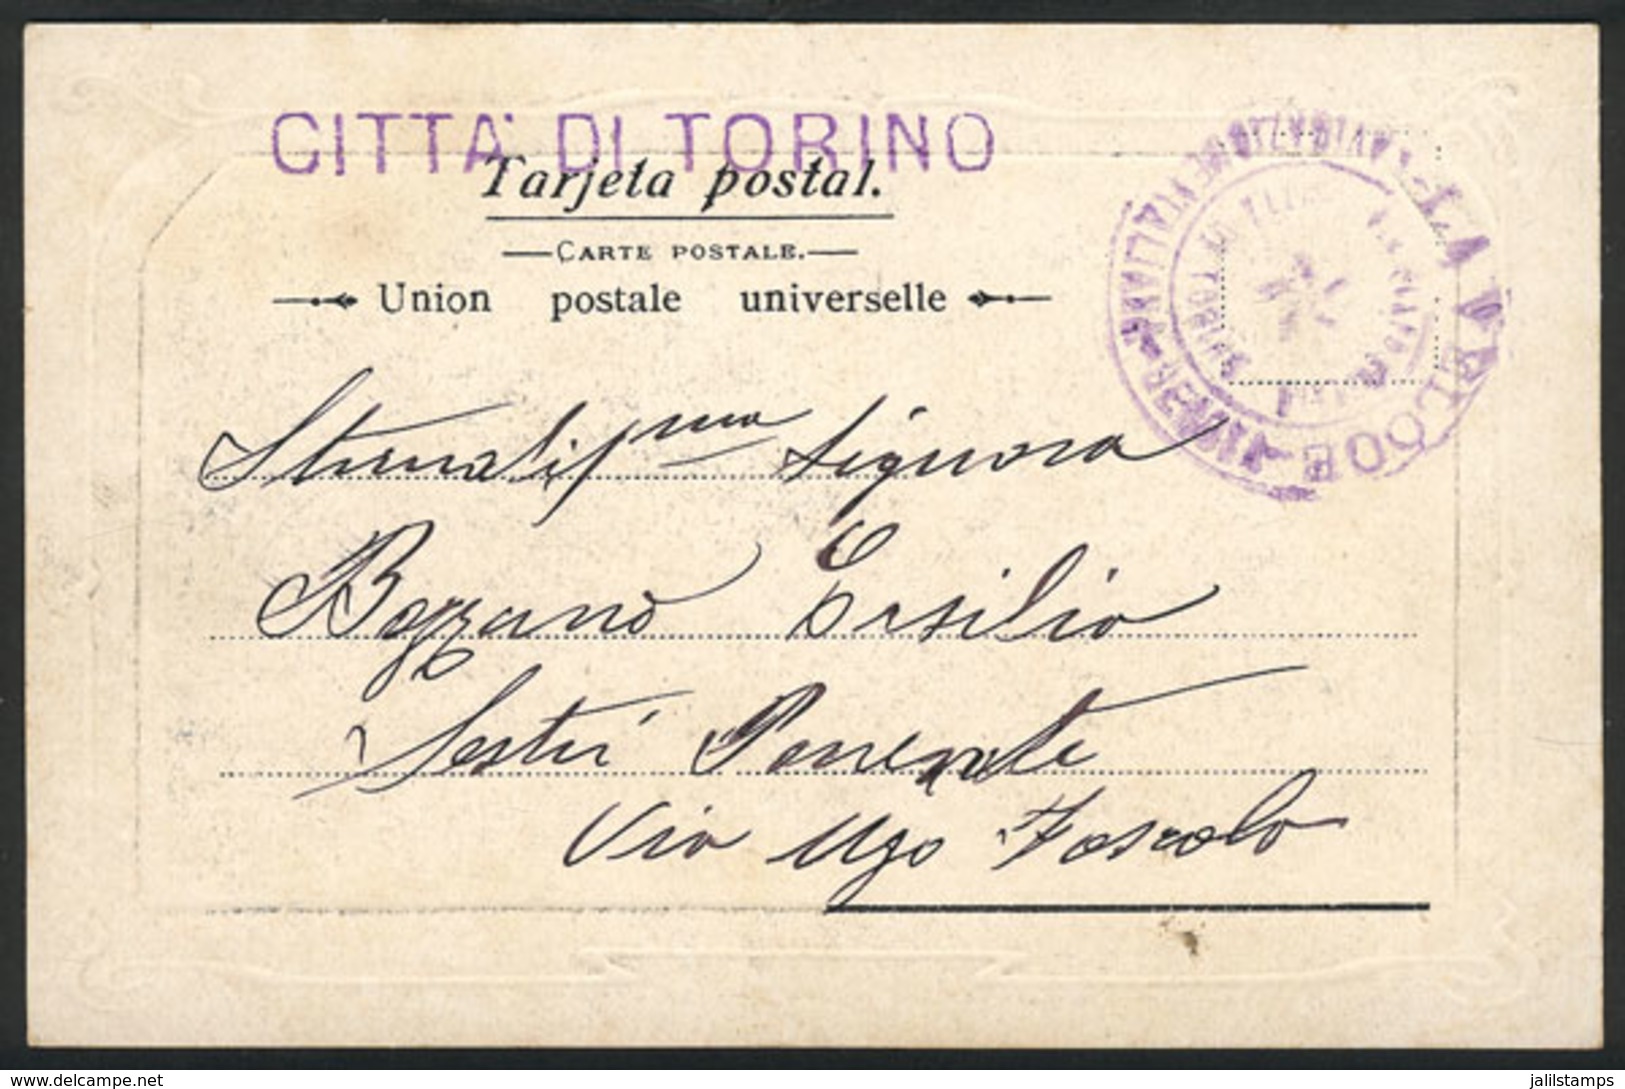 CITTA' DI TORINO
Tarjeta postal.
CARTE POSTALE.
Union postale universelle
LA VELOCE
NAVIGAZIONE ITALIANA
GENOVA
CITTÀ DI TORINO
Signora
Bozzano Ersilia
Sestri Ponente
Via Ugo Foscolo
delcampe.net
jalilstamps